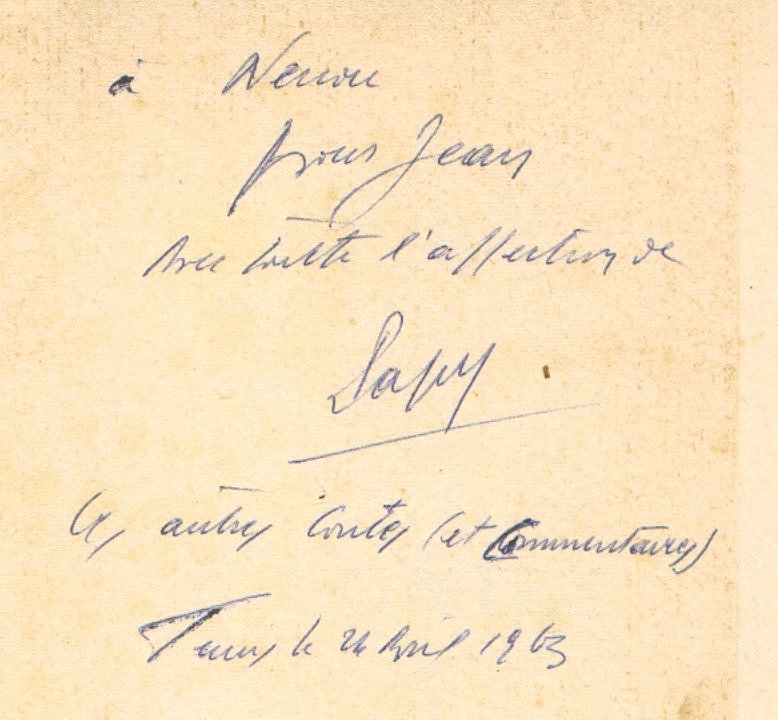 à Nenou
pour Jean
Avec toute l'affection de
Ces autres contes (et commentaires)
Tunis le 24 Avril 1963